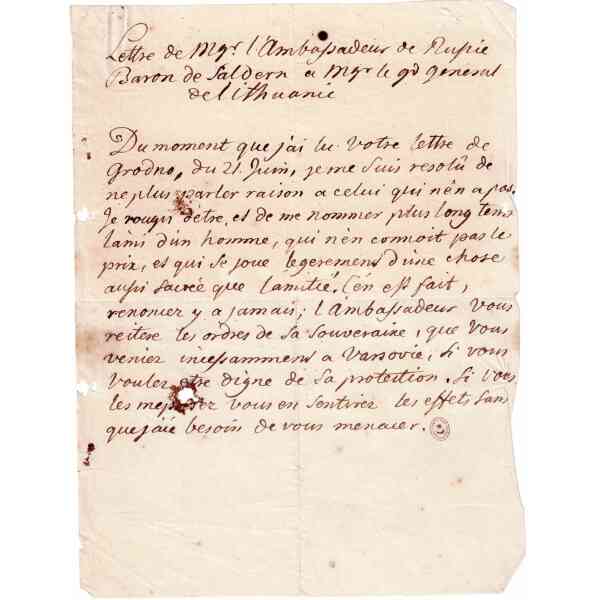 Lettre de Mgr. l'Ambassadeur de Russie
Baron de Saldern a Mgr le gd general
de Lithuanie
Du moment que j'ai lu votre lettre de
Grodno, du 21. Juin, je me suis resolû de
ne plus parler raison a celui qui n'en a pas,
je rougis d'etre, et de me nommer plus long tems
l'ami d'un homme, qui n'en connoit pas le
prix, et qui se joue legerement d'une chose
aussi sacrée que l'amitié. C'en est fait,
renoncer y a jamais; l'Ambassadeur vous
reitere les ordres de sa Souveraine, que vous
veniez incessamment a Varsovie, si vous
voulez etre digne de sa protection. Si vous
les vous en sentirez les effets sans
que j'aie besoin de vous menacer.